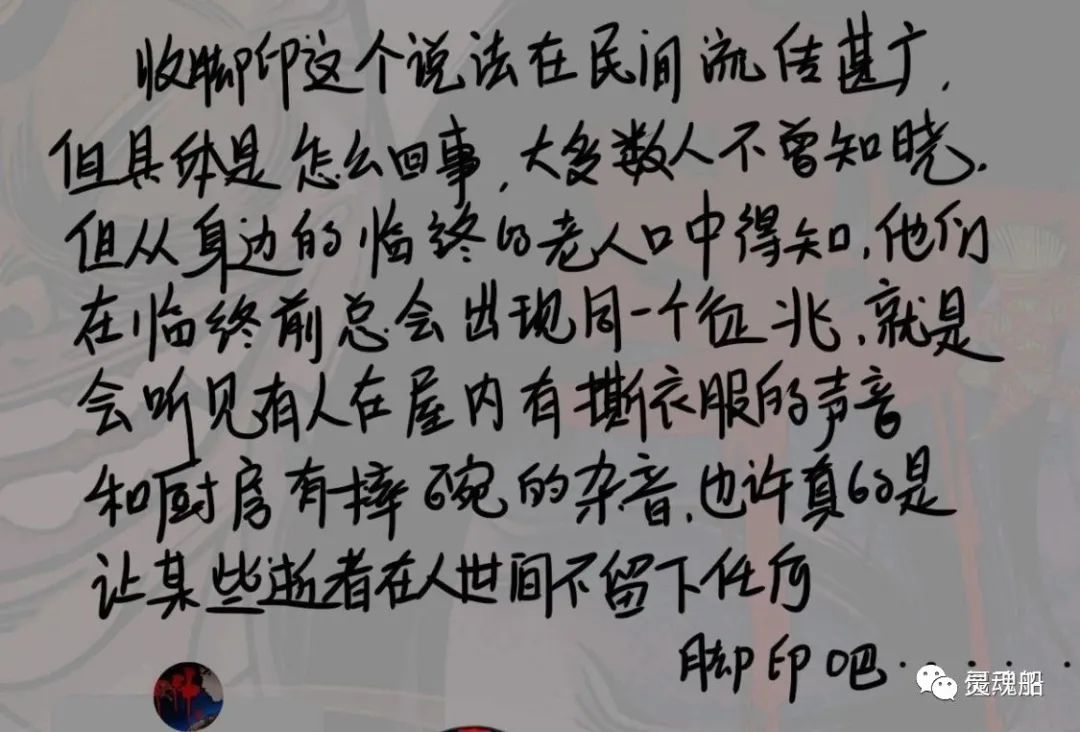 收脚印这个说法在民间流传甚广，
但具体是怎么回事，大多数人不曾知晓.
但从身边的临终的老人口中得知，他们
在临终前总会出现同一个征兆，就是
会听见有人在屋内有撕衣服的声音
和厨房有摔碗的杂音，也许真的是
让某些逝者在人世间不留下任何
脚印吧......
灵魂船